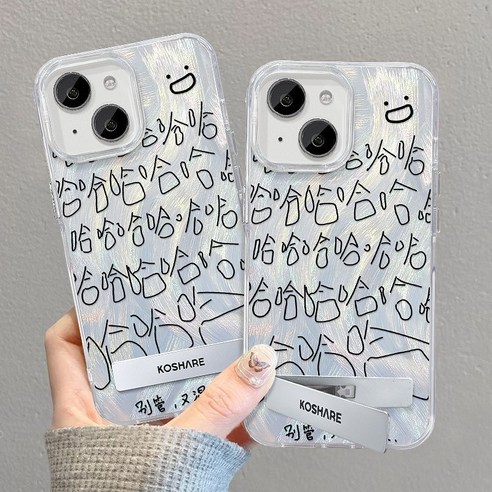 哈哈哈
哈哈哈哈哈哈
哈哈哈哈哈哈
哈哈哈哈哈
哈哈
KOSHARE
别管,又
哈哈哈
哈哈哈哈哈哈
哈哈哈哈哈哈
哈哈哈哈哈哈
哈哈
KOSHARE
别管,又